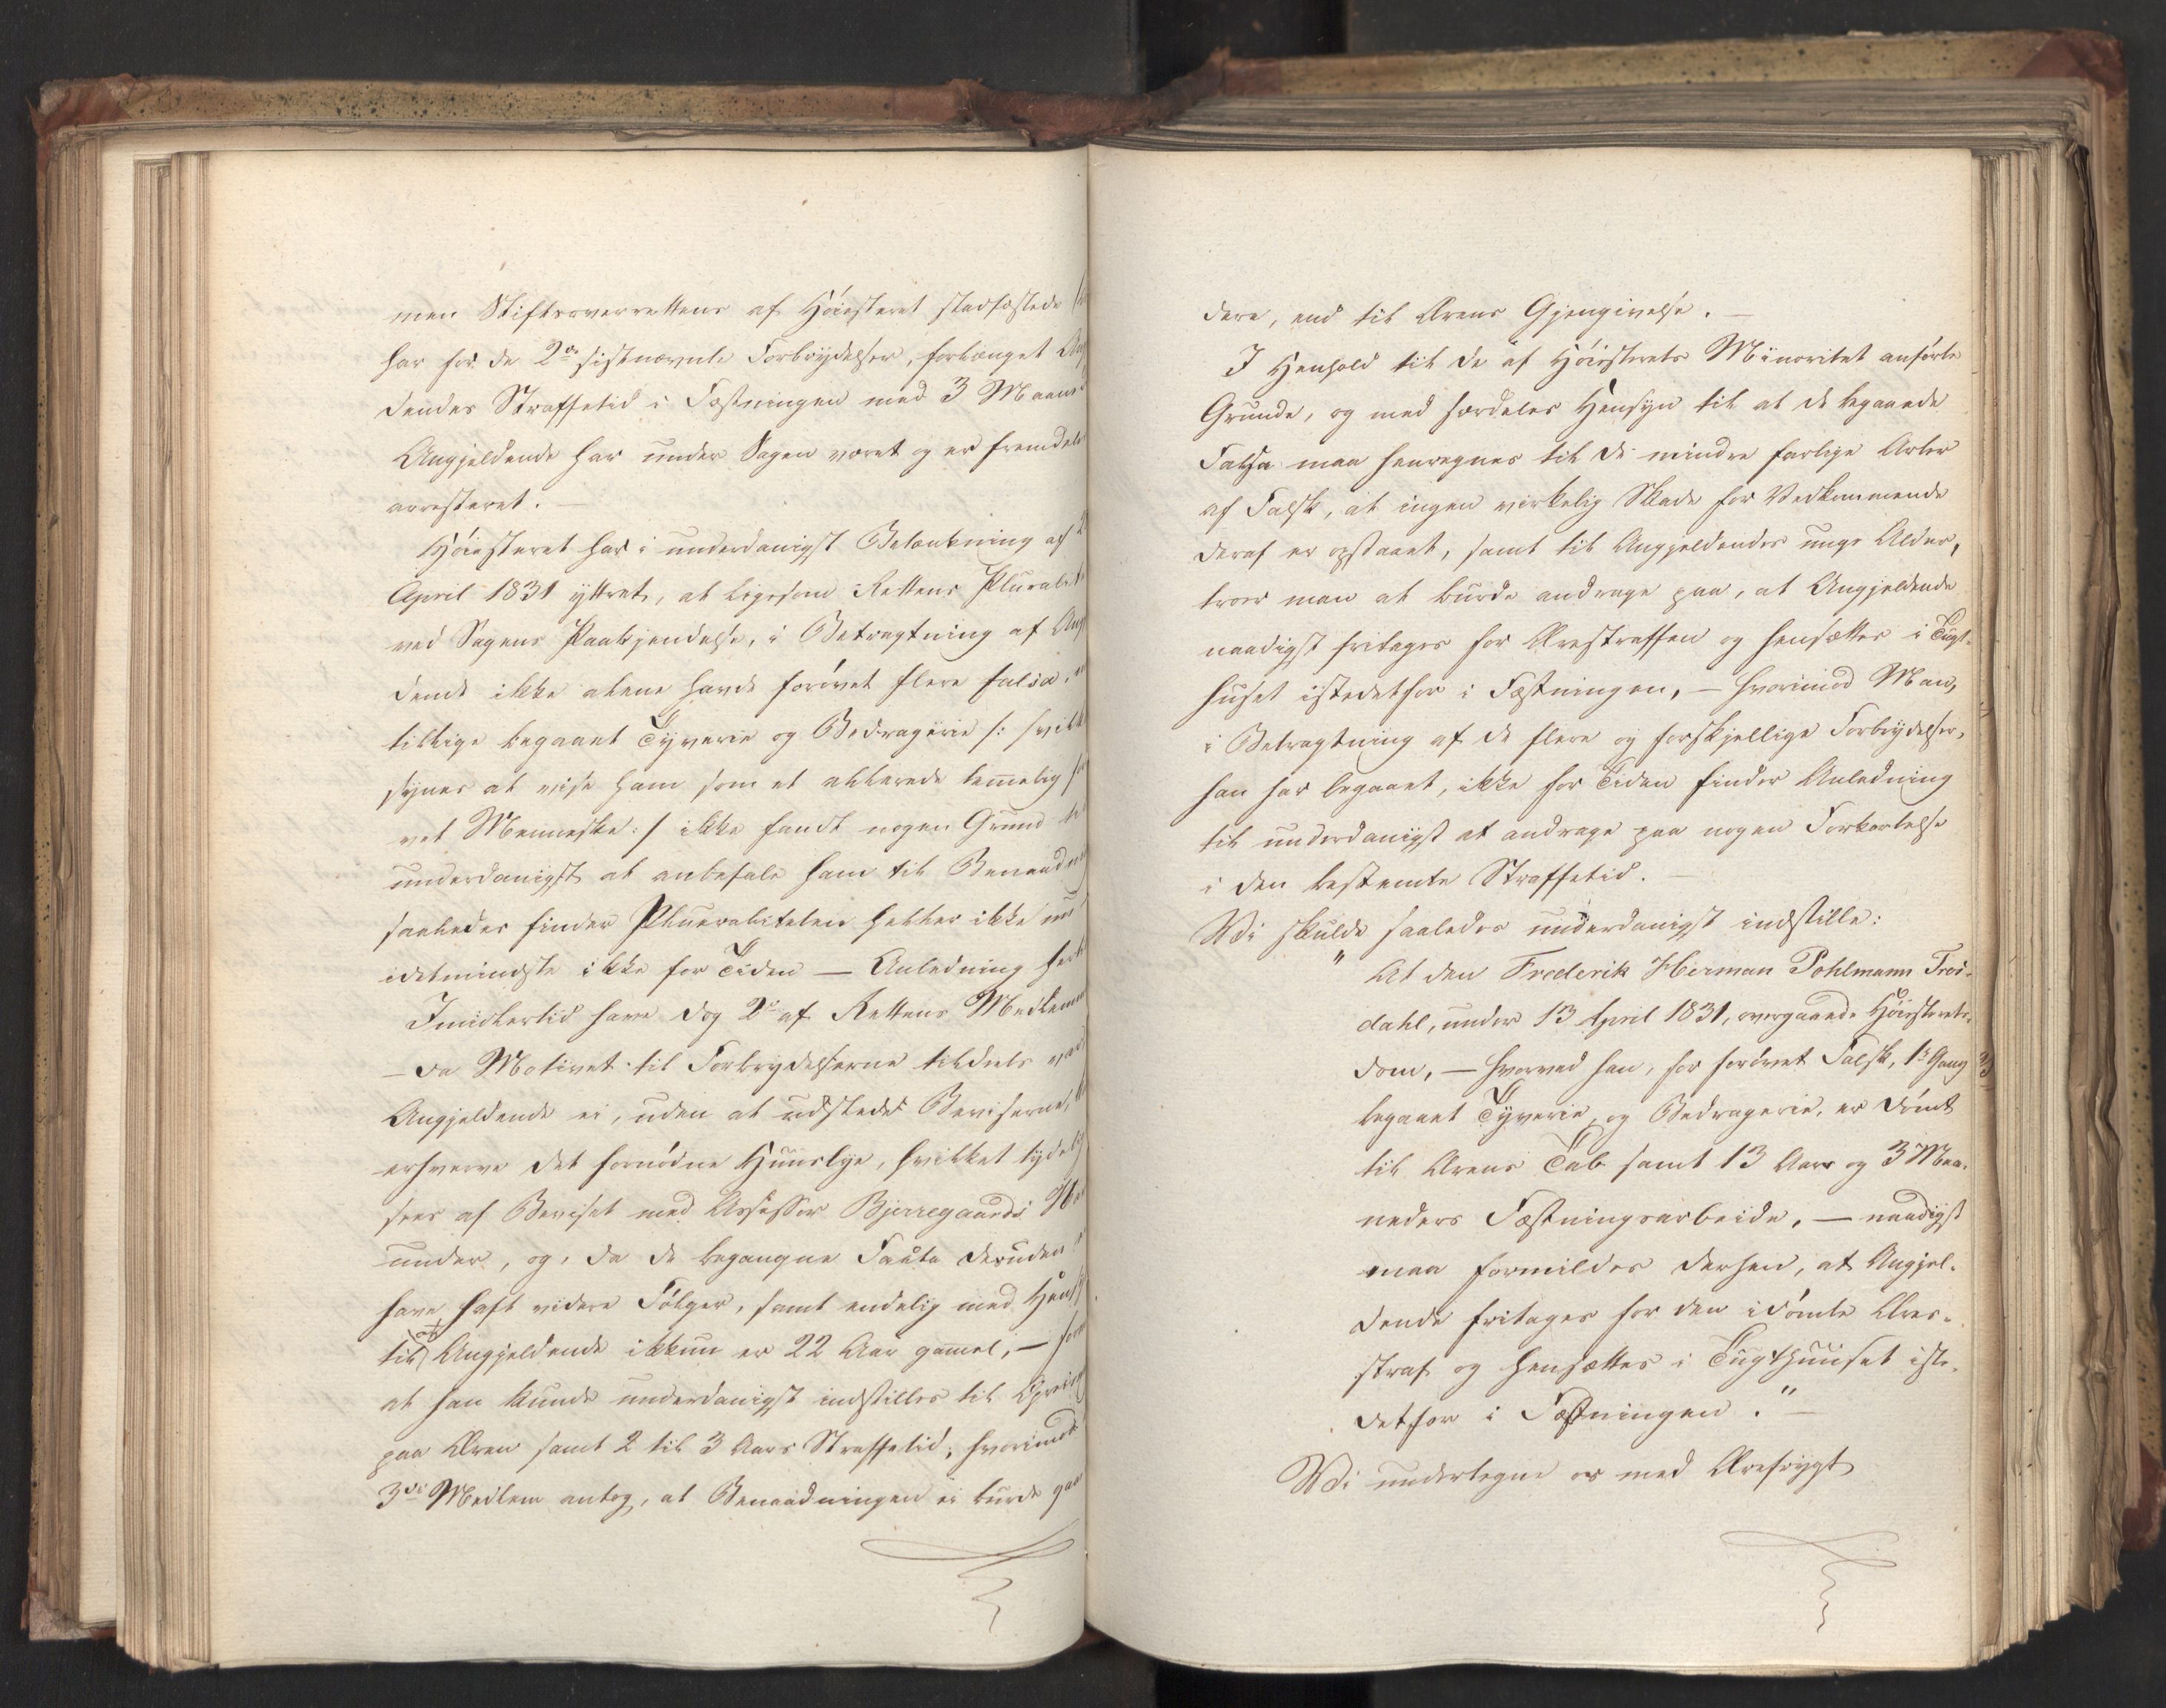 men Stiftsoverrettens af Høiesteret stadfæstede
har for de 2de sistnævnte Forbrydelser, forlænget Ang
dendes Straffetid i Fæstningen med 3 Maane
Angjeldende har under Sagen været og er fremdeles
arresteret. —
Høiesteret har i underdanigst Betænkning af
April 1831 yttret, at ligesom Rettens Pluralit
ved Sagens Paakjendelse, i Betragtning af Ang
dende ikke alene havde forøvet flere falsa,
tillige begaaet Tyverie og Bedragerie /: hvilk
synes at vise ham som et allerede temmelig
vet Menneske :/ ikke fandt nogen Grund til
underdanigst at anbefale ham til Benaadn
saaledes finder Pluraliteten heller ikke nu
idetmindste ikke for Tiden — Anledning hert
Imidlertid have dog 2de af Rettens Medlem
— da Motivet til Forbrydelserne tildeels var
Angjeldende ei, uden at udstede Beviserne,
erhverve det fornødne Huuslye, hvilket tydelig
sees af Beviset med Assessor Bjerregaards
under, og, da de begangne Falsa desuden
have haft videre Følger, samt endelig med Hens
til at Angjeldende ikkun er 22 Aar gamel, —
at han kunde underdanigst indstilles til Opreis
paa Æren samt 2 til 3 Aars Straffetid; hvorimod
3die Medlem antog, at Benaadningen ei burde gaa
dere, end til Ærens Gjengivelse. —
I Henhold til de af Høiesterets Minoritet anførte
Grunde, og med særdeles Hensyn til at de begaaede
Falsa maa henregnes til de mindre farlige Arter
af Falsk, at ingen virkelig Skade for Vedkommende
deraf er opstaaet, samt til Angjeldendes unge Alder,
troer man at burde andrage paa, at Angjeldende
naadigst fritages for Ærestraffen og hensættes i Tugt-
huset istedetfor i Fæstningen, — hvorimod Man,
i Betragtning af de flere og forskjellige Forbrydelser,
han har begaaet, ikke for Tiden finder Anledning
til underdanigst at andrage paa nogen Forkortelse
i den bestemte Straffetid. —
Vi skulde saaledes underdanigst indstille:
" At den Frederik Herman Pohlmann Trei-
dahl, under 13 April 1831, overgaaede Høiesterets-
dom, — hvorved han, for forøvet Falsk, 1ste Gang
begaaet Tyverie, og Bedragerie, er dømt
til Ærens Tab samt 13 Aars og 3 Maa-
neders Fæstningsarbeide, — naadigst
maa formildes derhen, at Angjel-
dende fritages for den idømte Æres-
straf og hensættes i Tugthuuset iste-
detfor i Fæstningen." —
Vi undertegne os med Ærefrygt